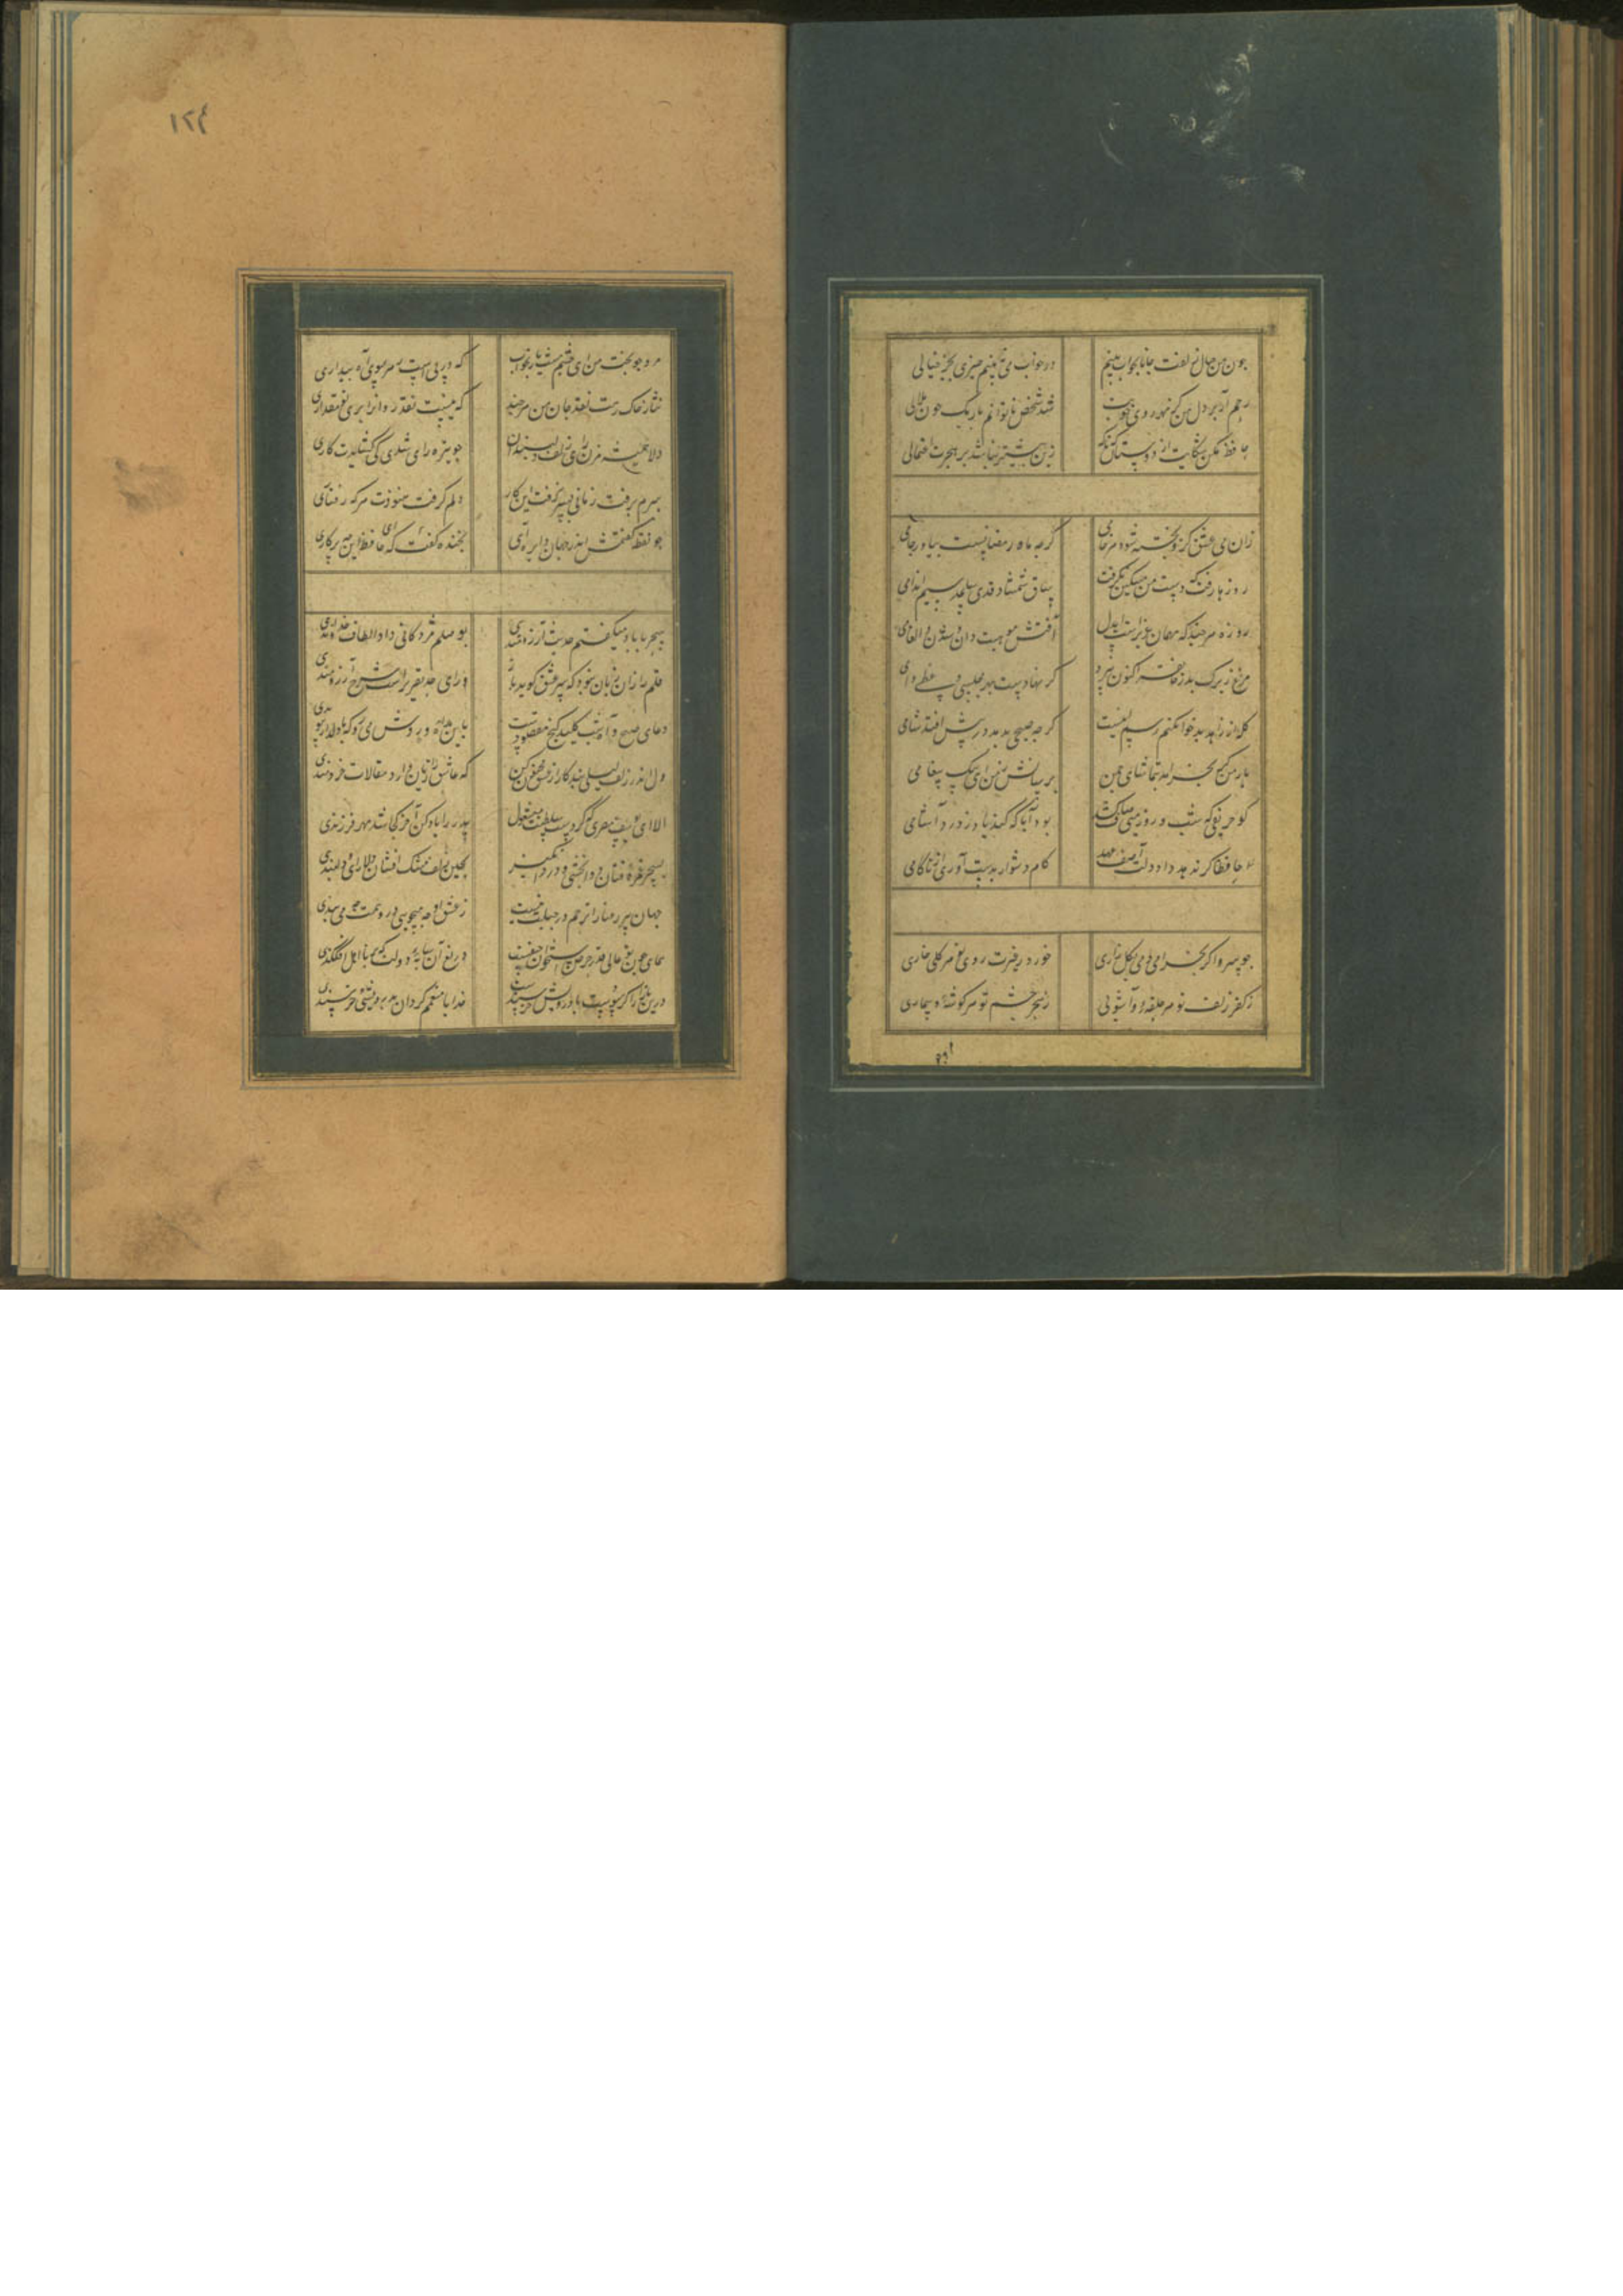 چون من خیال زلفت جانا بخواب بینم در خواب می نبینم چیزی بجز خیالی
رحم آر بر دل من کز مهر روی خوبت شد شخص ناتوانم باریک چون هلالی
حافظ مکن شکایت از دوستان زین بیشتر نباشد بر هجرت احتمالی
زان می عشق کزو پخته شود هر خامی کرچه ماه رمضانست بیاور جامی
روزها رفت که دست من مسکین نکرفت ساق شمشاد قدی ساعد سیم اندامی
روزه هرچند که مهمان عزیزست ای دل موهبت دان و شدن انعامی
مرغ زیرک بدر خانقه اکنون نپرد که نهادست بهر مجلس وعظی دامی
کله از زاهد بدخو نکنم رسم اینست که چو صبحی بدمد در پیش افتد شامی
یار من کر بخرامد بتماشای چمن برسانش ز من ای پیک پیغامی
کو حریفی که شب و روز می صاف کشد بود آیا که کند یاد ز درد آشامی
حافظا کر ندهد داد دلت آصف عهد کام دشوار بدست آوری از ناکامی
چو سرو اکر بخرامی دمی بکلزاری خورد ز غیرت روی تو هر کلی خاری
ز کفر زلف تو هر حلقه و آشوبی ز سحر چشم تو هر کوشه و بیماری
۱۲۴
مرو چو بخت من ای چشم مست یار بخواب که در پی است ز هر سوی آه بیداری
نثار خاک رهت نقد جان من هرچند که نیست نقد روانرا بر تو مقداری
دلا همیشه مزن رای زلف دلبندان چو تیره رای شدی کی کشایدت کاری
سرم برفت و زمانی بسر نرفت این کار دلم کرفت و نبودت سر کرفتاری
چو نقطه کفتمش اندر میان دایره آی بخنده کفت که ای حافظ این چه پرکاری
سحر با باد میکفتم حدیث آرزومندی خطاب داد الطاف خداوندی
قلم را آن زبان نبود که سر عشق کوید باز ورای حد تقریرست شرح آرزومندی
دعای صبح و آه شب کلید کنج مقصودست باین راه و روش می رو که با دلدار پیوندی
دل اندر زلف لیلی بند و کار از عشق مجنون کن که عاشق را زیان دارد مقالات خردمندی
الا ای یوسف مصری که کردت سلطنت مشغول پدر را باز کن آخر کجا شد مهر فرزندی
بسحر غمزه فتان دوابخشی و دردانکیز بچین زلف مشک افشان دلارای و دلبندی
جهان پیر رعنا را ترحم در جبلت نیست ز عشق او چه میجویی درو همت چه می بندی
همای چون تو عالی قدر حرص استخوان حیفست دریغ آن سایه دولت که بر نااهل افکندی
درین بازار اکر سودیست با درویش خرسندست خدایا منعمم کردان بدرویشی و خرسندی